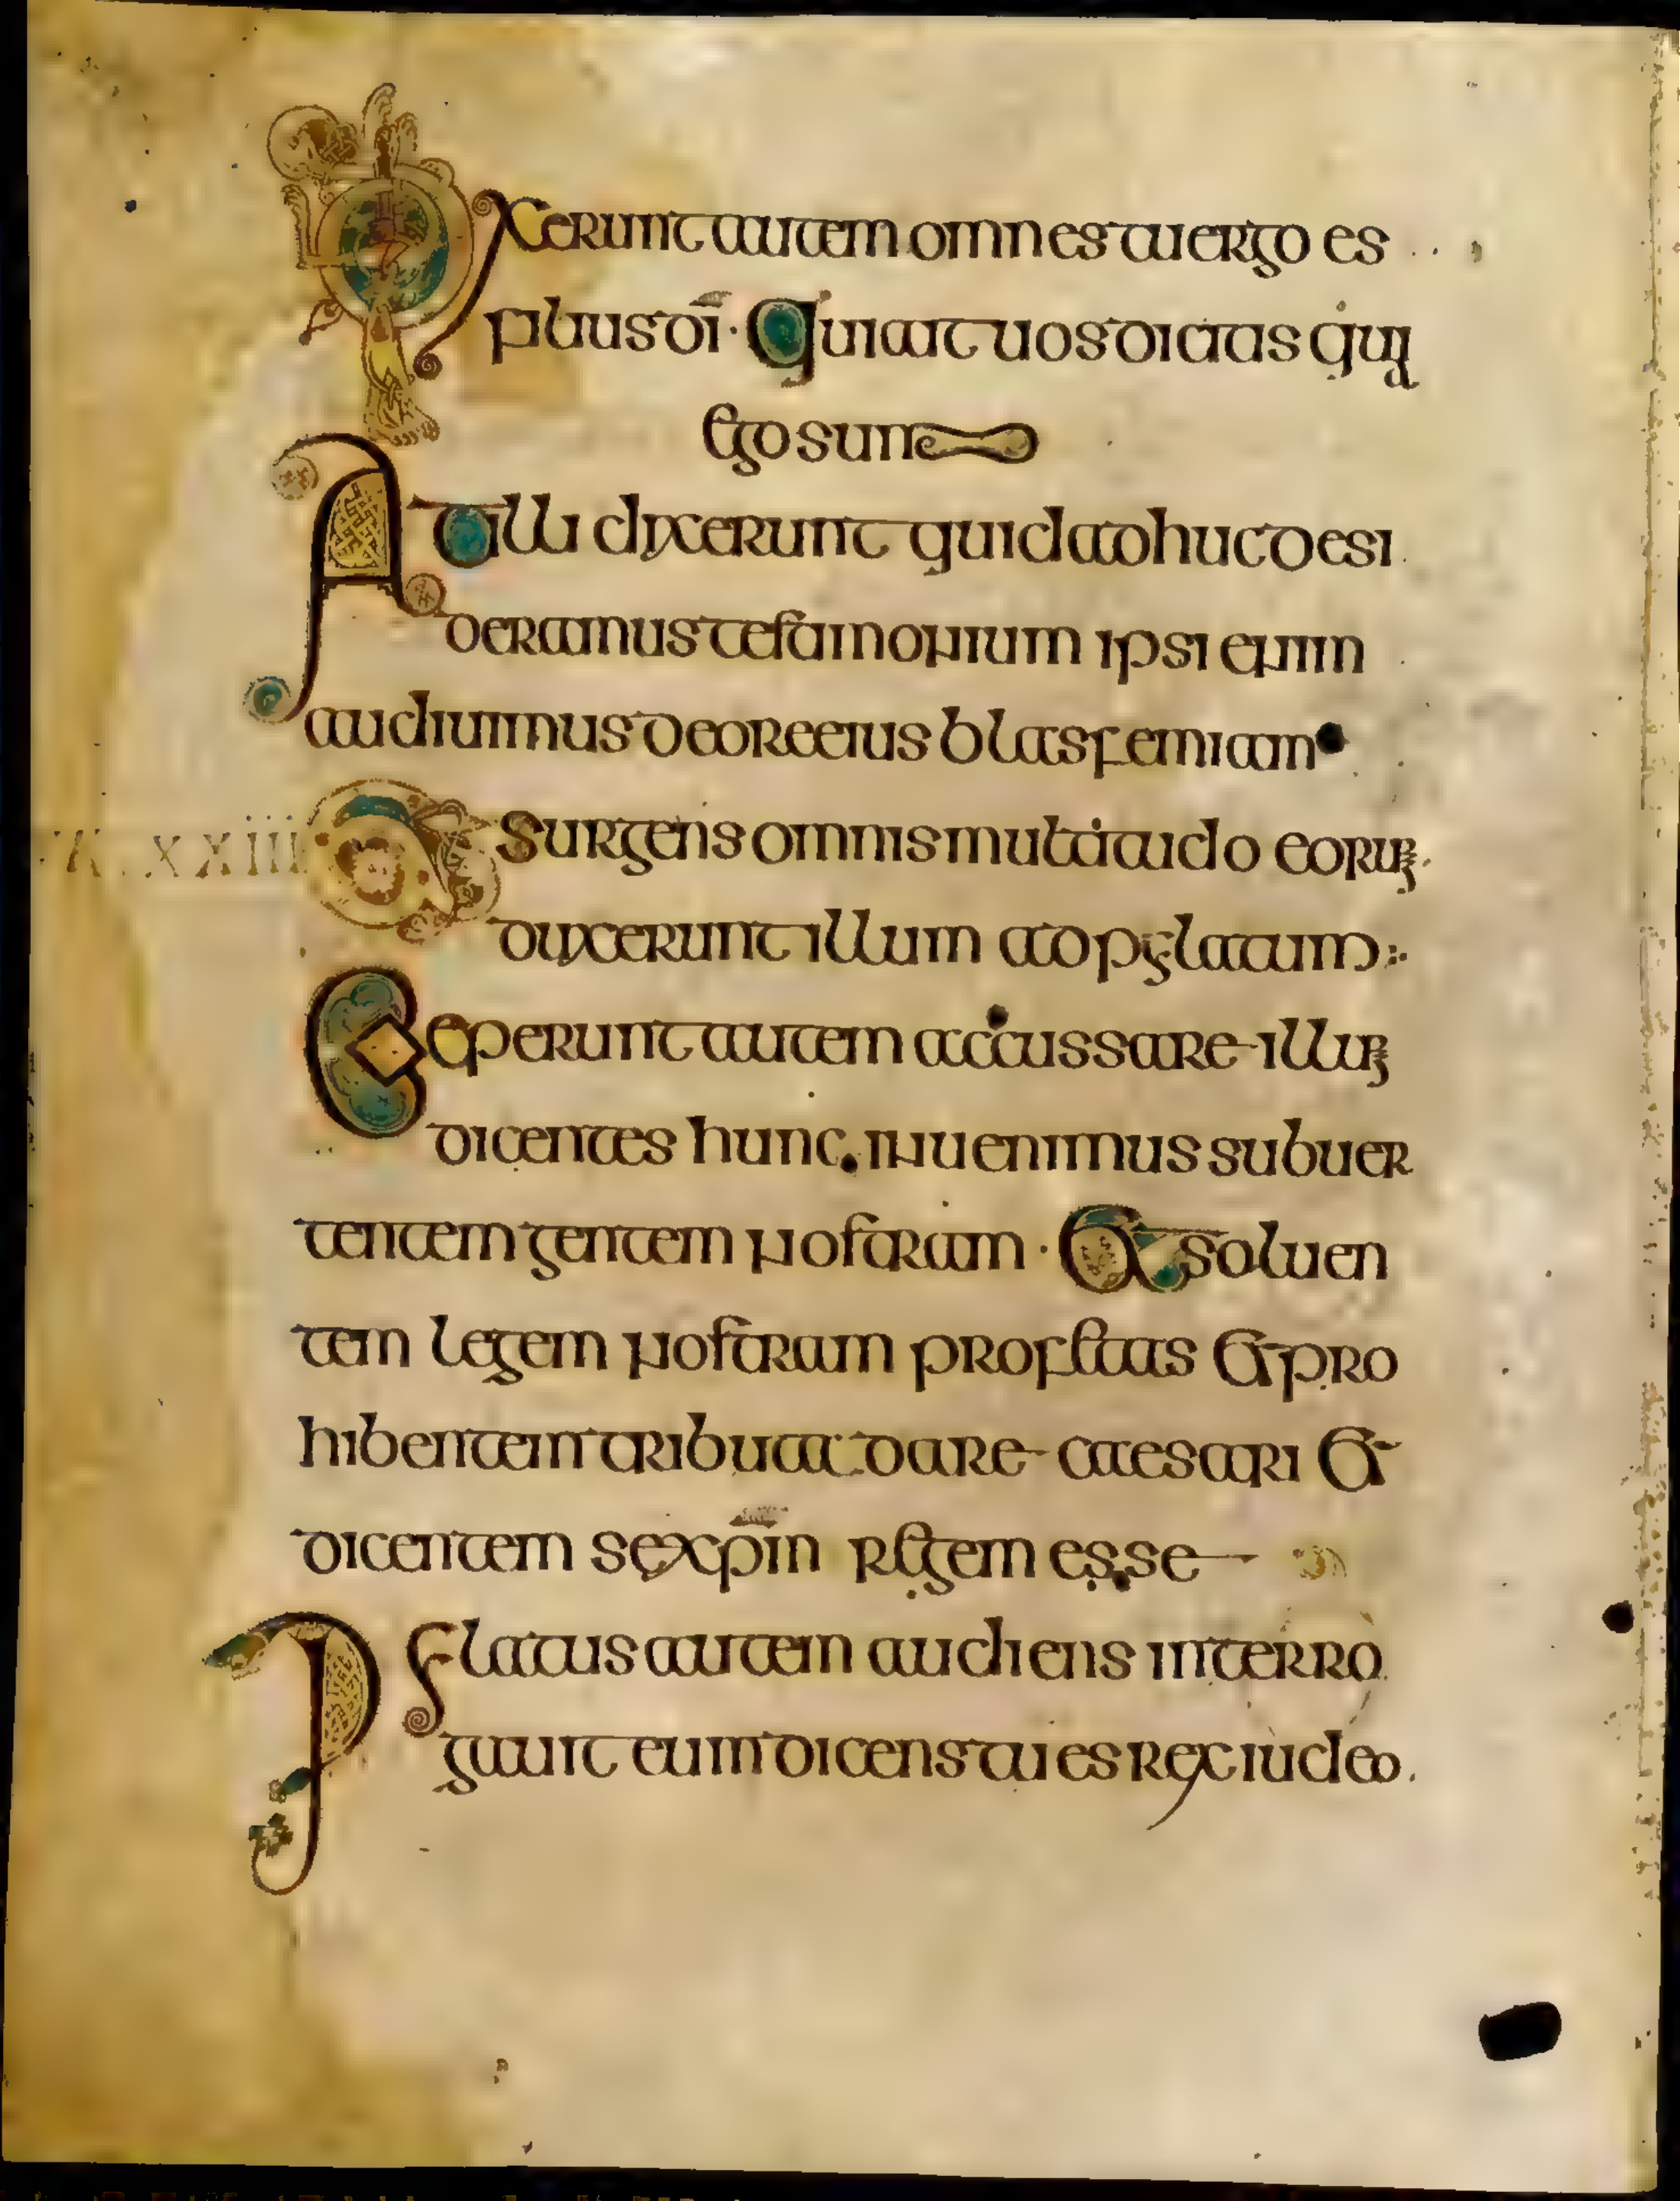 Dixerunt autem omnes tu ergo es
filius dī · Qui ait uos dicitis quia
ego sum
At illi dixerunt quid adhuc desi
deramus testimonium ipsi enim
audiuimus de ore eius blasfemiam
Et surgens omnis multitudo eorum
duxerunt illum ad pylatum :·
Ceperunt autem accussare illum
dicentes hunc inuenimus subuer
tentem gentem nostram · Et soluen
tem legem nostram profetas et pro
hibentem tributa dare caesari et
dicentem se xp̄m regem esse
Pylatus autem audiens interro
gauit eum dicens tu es rex iudeo